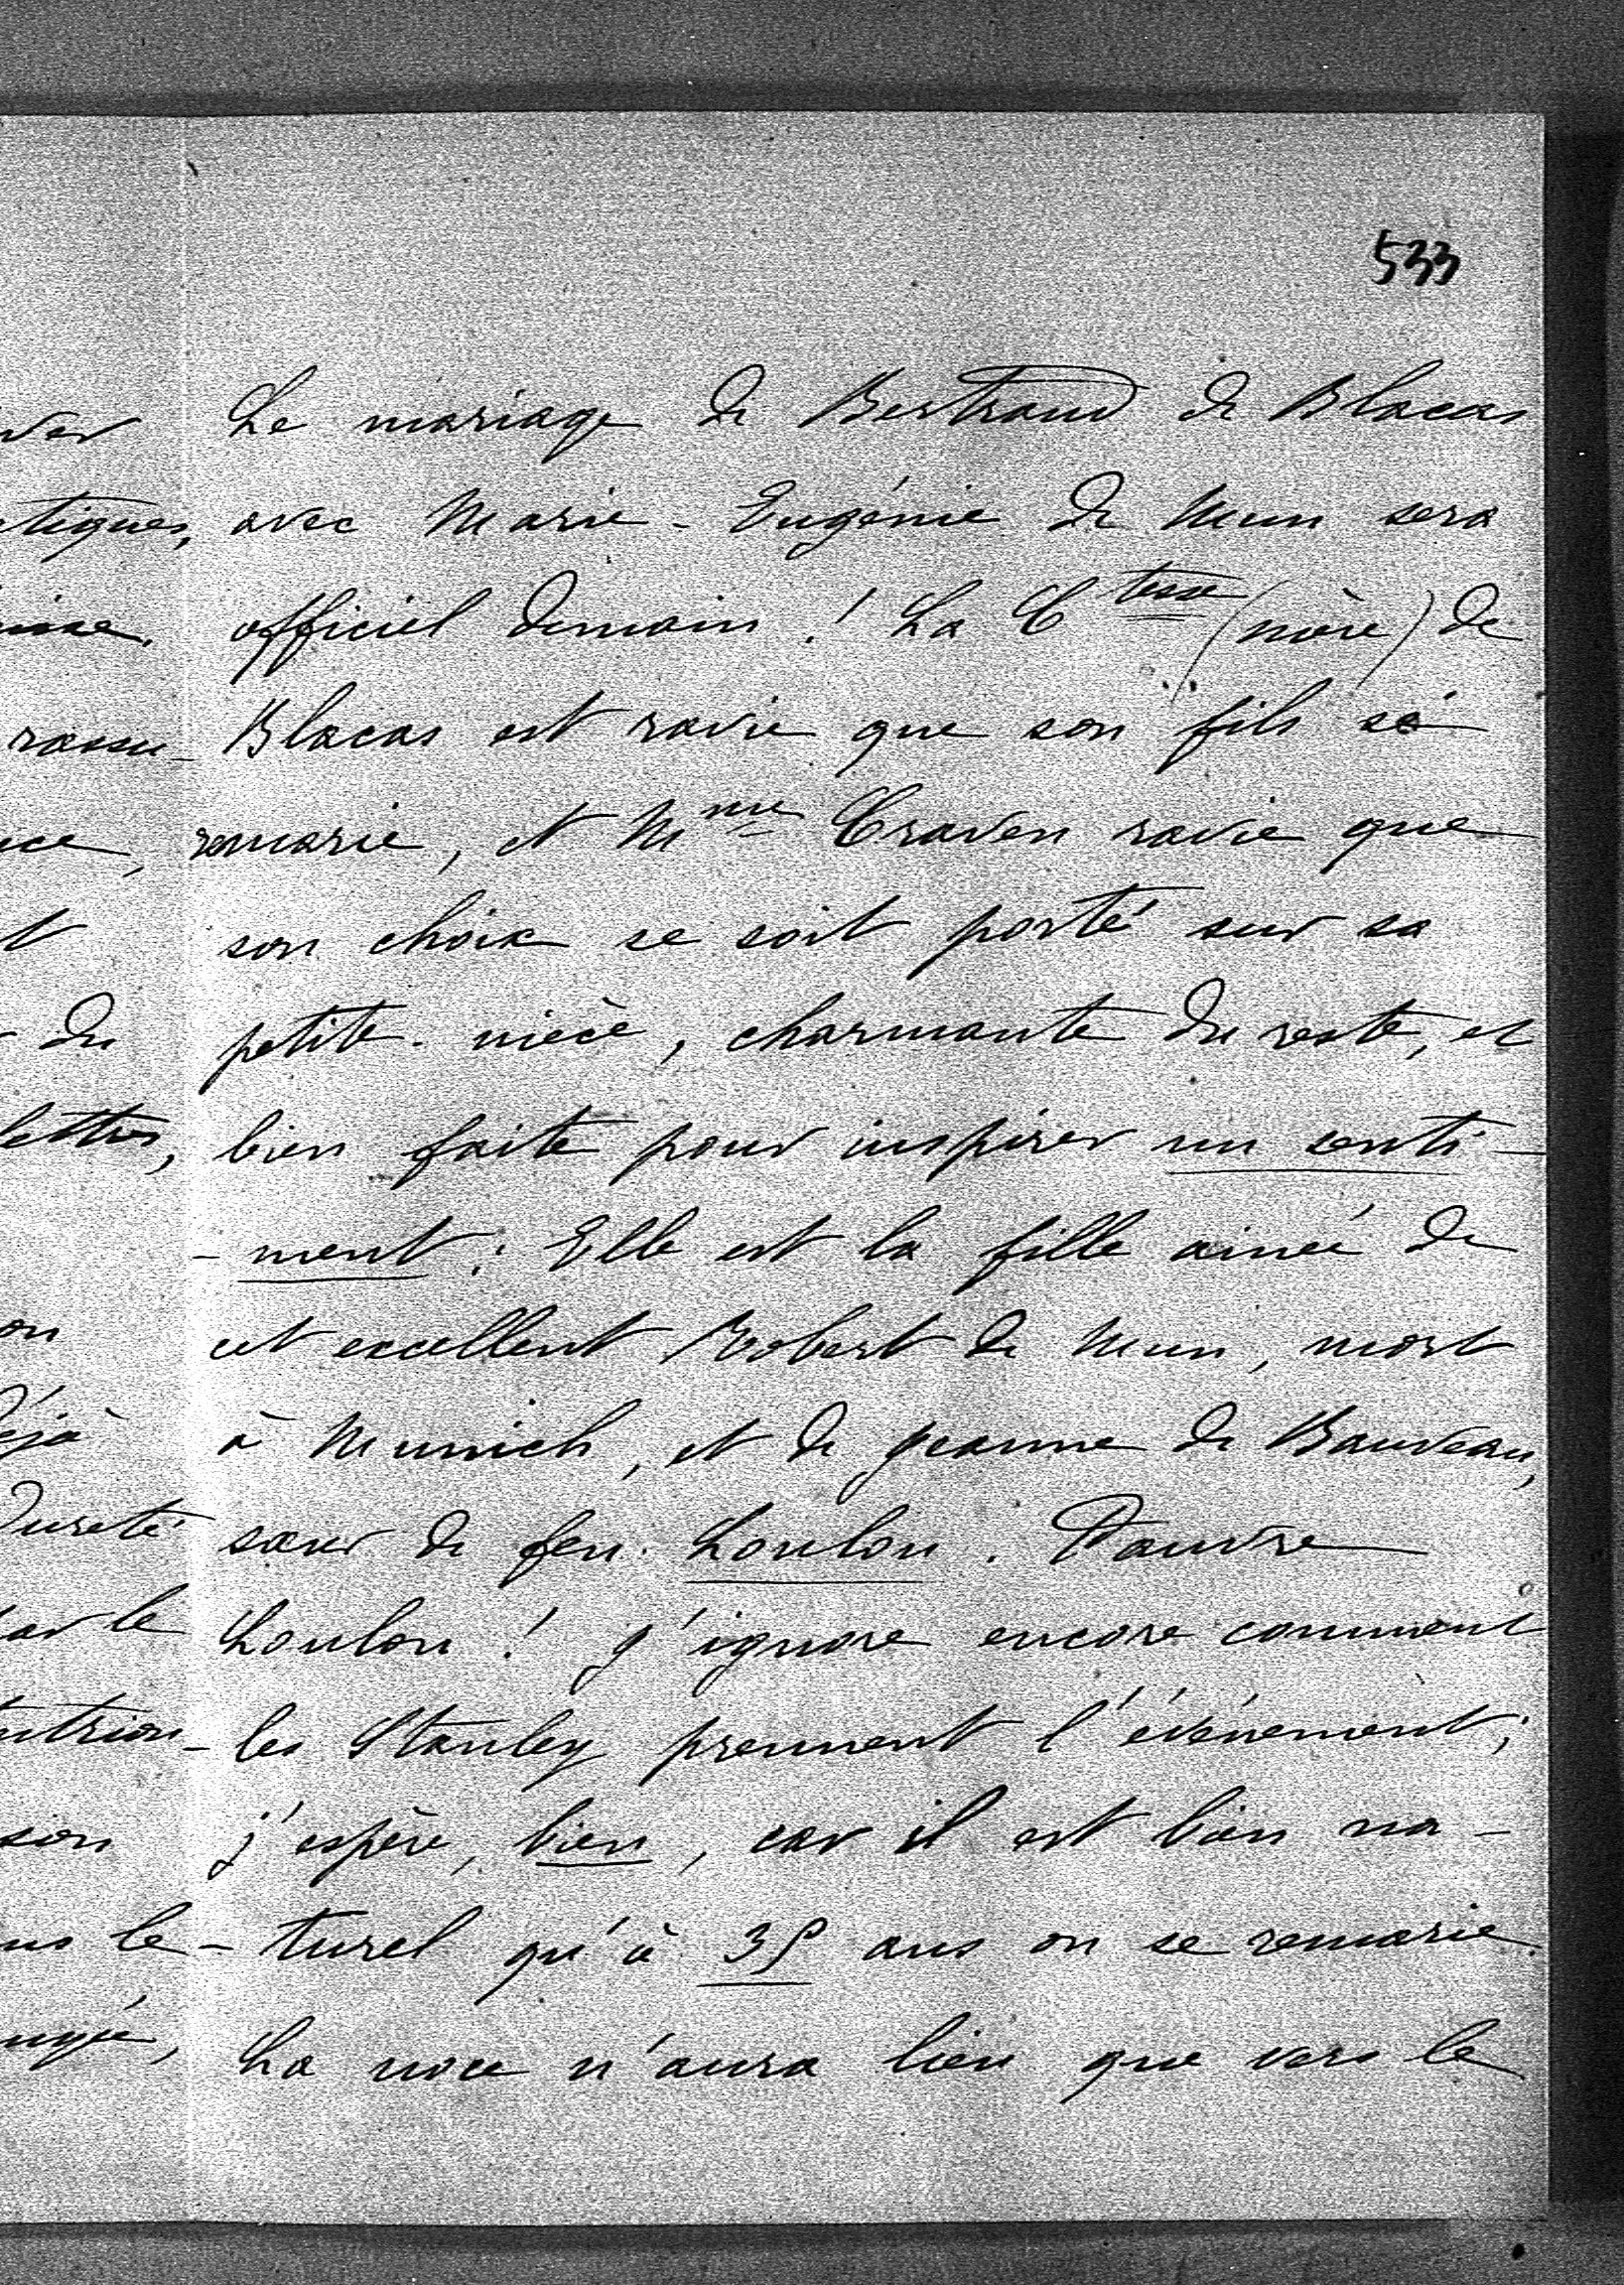 533
Le mariage de Bertrand de Blacas
avec Marie-Eugénie de Mun sera
officiel demain! La Ctesse (mère) de
Blacas est ravie que son fils se
remarie, et Mme Craven ravie que
son choix se soit porté sur sa
petite-nièce, charmante du reste, et
bien faite pour inspirer un senti-
-ment: Elle est la fille ainée de
cet excellent Robert de Mun, mort
à Munich, et de Jeanne de Bauveau,
sœur de feu Loulou. Pauvre
Loulou! J'ignore encore comment
les Stanley prennent l'événement;
j'espère, bien, car il est bien na-
-turel qu'à 35 ans on se remarie.
La noce n'aura lieu que vers le
tiques,
rassu-
du
lettres,
déjà
dureté
par le
son